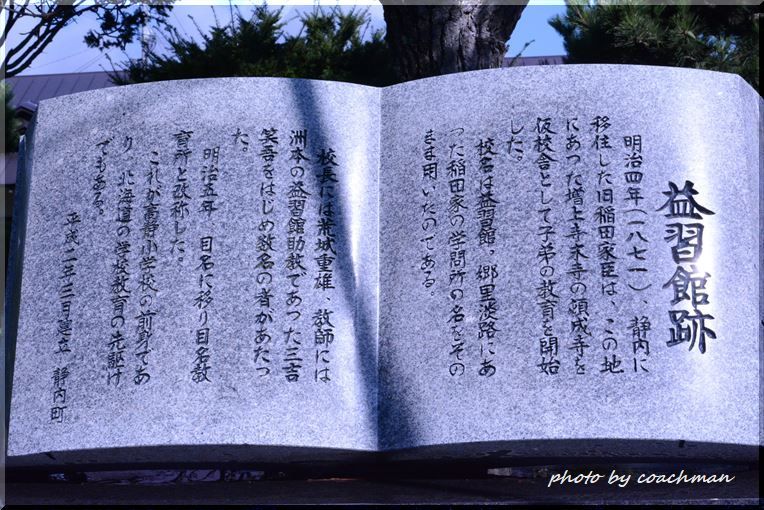 益習館跡
明治四年(一八七一)、静内に
移住した旧稲田家臣は、この地
にあった増上寺末寺の頌成寺を
仮校舎として子弟の教育を開始
した。
校名は益習館。郷里淡路にあ
った稲田家の学問所の名をその
まま用いたのである
校長には荒城重雄、教師には
洲本の益習館助教であった三吉
笑吾をはじめ数名の者があたっ
た。
明治五年 目名に移り目名教
育所と改称した。
これが高静小学校の前身であ
り、北海道の学校教育の先駆け
でもある。
平成二年三月建立 静内町
photo by coachman